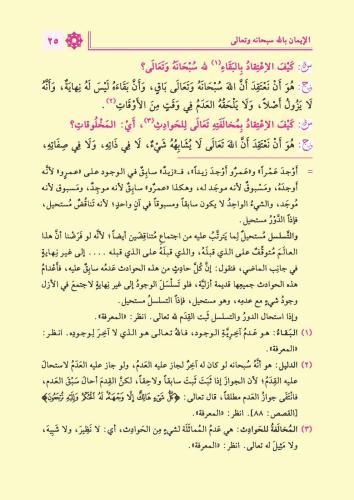 الإيمان بالله سبحانه وتعالى
٢٥
س: كَيْفَ الاِعْتِقادُ بِالبَقَاءِ(١) لله سُبْحَانَهُ وَتَعَالَى؟
ج: هُوَ أَنْ نَعْتَقِدَ أَنَّ اللهَ سُبْحَانَهُ وَتَعَالَى بَاقٍ، وَأَنَّ بَقَاءَهُ لَيْسَ لَهُ نِهَايَةٌ، وَأَنَّهُ
لَا يَزُولُ أَصْلاً، وَلَا يَلْحَقُهُ العَدَمُ فِي وَقْتٍ مِنَ الأَوْقَاتِ(٢).
س: كَيْفَ الاِعْتِقادُ بِمُخالَفَتِهِ تَعَالَى لِلحَوادِثِ(٣)، أَيْ: المَخْلُوقاتِ؟
ج: هُوَ أَنْ نَعْتَقِدَ أَنَّ اللهَ تَعَالَى لَا يُشَابِهُهُ شَيْءٌ، لَا فِي ذَاتِهِ، وَلَا فِي صِفَاتِهِ،
= أَوْجَدَ عَمْراً» و«عَمْرٌو أَوْجَدَ زيداً»، فـ«زيدٌ» سابِقٌ في الوجود على «عمرو» لأنَّه
أوجدَهُ، ومَسْبوقٌ لأنه موجَد له، وهكذا «عمرٌو» سابِقٌ لأنه موجِدٌ، ومسبوق لأنه
موجَد، والشيءُ الواحِدُ لا يكون سابقاً ومسبوقاً في آنٍ واحدٍ؛ لأنه تَناقُضٌ مُستحيل،
فإذاً الدَّوْرُ مستحيل.
والتَّسلسلُ مُستحيلٌ لِما يَترتَّبُ عليه من اجتماعِ مُتناقِضَين أيضاً؛ لأنَّه لو فَرَضْنا أنَّ هذا
العالَمَ مُتوقِّفٌ على الذي قبلَهُ، والذي قبلَهُ على الذي قبله .... إلى غيرِ نِهايةٍ
في جانِب الماضي، فنقول: إنَّ كُلَّ حادِثٍ من هذه الحوادثِ عَدَمُه سابِقٌ عليه، فأعْدامُ
هذه الحوادث جميعِها قديمة أزليَّة، فلو تَسلْسَلَ الوجودُ إلى غيرِ نِهايةٍ لاجتمعَ في الأزل
وجودُ شيءٍ مع عدمِه، وهو مستحيل، فإذاً التسلسل مستحيل.
وإذا استحال الدورُ والتسلسل ثَبت القِدَم لله تعالى. انظر: «المعرفة».
(١) البَقـاءُ: هو عَدمُ آخِرِيَّةِ الوجود، فالله تعالى هو الذي لا آخِـرَ لِوجودِه. انظر:
«المعرفة».
(٢) الدليل: هو أنَّهُ سبحانه لو كان له آخِرٌ لجازَ عليه العَدمُ، ولو جاز عليه العَدمُ لاستحالَ
عليه القِدَمُ؛ لأن الجوازَ إذا ثَبَتَ ثَبَتَ سابقاً ولاحِقاً، لكنَّ القِدَمَ أحالَ سَبْقَ العَدَمِ،
فانْتَفَى جوازُ العَدمِ مطلقاً، قال تعالى: ﴿كُلُّ شَىْءٍ هَالِكٌ إِلَّا وَجْهَهُۥ لَهُ ٱلْحُكْمُ وَإِلَيْهِ تُرْجَعُونَ﴾
[القصص: ٨٨]. انظر: «المعرفة».
(٣) المُخالَفَةُ للحَوادث: هي عَدمُ المُماثَلَةِ لشيءٍ مِن الحَوادِث، أي: لا نَظيرَ، ولا شَبِيهَ،
ولا مَثِيلَ له تعالى. انظر: «المعرفة».